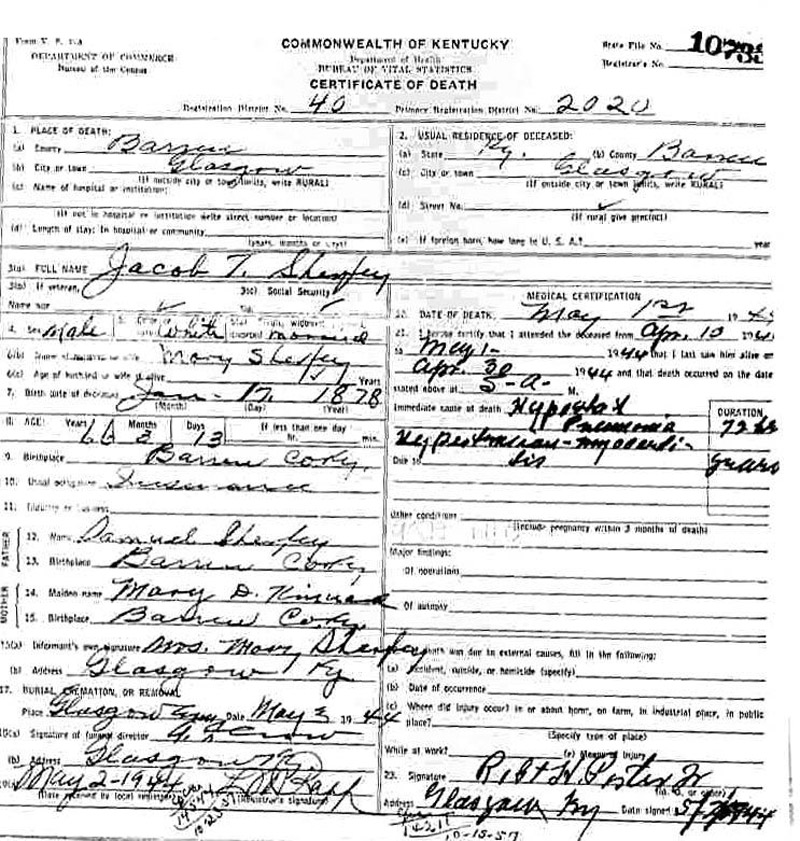 Form V. S. 1-A
DEPARTMENT OF COMMERCE
Bureau of the Census
COMMONWEALTH OF KENTUCKY
Department of Health
BUREAU OF VITAL STATISTICS
CERTIFICATE OF DEATH
State File No.
Registrar's No.
Registration District No. 40 Primary Registration District No. 2020
1. PLACE OF DEATH:
(a) County Barren
(b) City or town Glasgow
(If outside city or town limits, write RURAL)
(c) Name of hospital or institution:
(If not in hospital or institution write street number or location)
(d) Length of stay: In hospital or community
(years, months or days)
2. USUAL RESIDENCE OF DECEASED:
(a) State Ky. (b) County Barren
(c) City or town Glasgow
(If outside city or town limits, write RURAL)
(d) Street No.
(If rural give precinct)
(e) If foreign born, how long in U. S. A.? year
3(a) FULL NAME Jacob T. Sherfey
3(b) If veteran, 3(c) Social Security
Name war No.
4. Sex Male White married
6(b) Name of husband or wife Mary Sherfey
6(c) Age of husband or wife if alive Years
7. Birth date of deceased Jan - 17 1878
(Month) (Day) (Year)
8. AGE: Years Months Days If less than one day
66 3 13 hr. min.
9. Birthplace Barren Co Ky.
10. Usual occupation Insurance
11. Industry or business
FATHER
12. Name Samuel Sherfey
13. Birthplace Barren Co Ky.
MOTHER
14. Maiden name Mary D.
15. Birthplace Barren Co Ky.
(a) Informant's own signature Mrs. Mary Sherfey
(b) Address Glasgow Ky
17. BURIAL, CREMATION, OR REMOVAL
Place Glasgow Date May 1944
(a) Signature of funeral director
(b) Address Glasgow Ky.
May 2-1944
(Date received by local registrar) (Registrar's signature)
MEDICAL CERTIFICATION
20. DATE OF DEATH May 1st 194
21. I hereby certify that I attended the deceased from Apr. 10 194
to May 1- 1944 that I last saw him alive on
Apr. 30 1944 and that death occurred on the date
stated above at 5-A- M.
Immediate cause of death Hypostat DURATION
Pneumonia 72 hrs
Hypertension - myocardi-
Due to sis years
Other conditions
(Include pregnancy within 3 months of death)
Major findings:
Of operations
Of autopsy
was due to external causes, fill in the following:
(a) Accident, suicide, or homicide (specify)
(b) Date of occurrence
(c) Where did injury occur? in or about home, on farm, in industrial place, in public
place?
(Specify type of place)
While at work? (e) Means of injury
23. Signature Robt H. Porter Jr
(M. D. or other)
Address Glasgow Ky Date signed
10-15-57